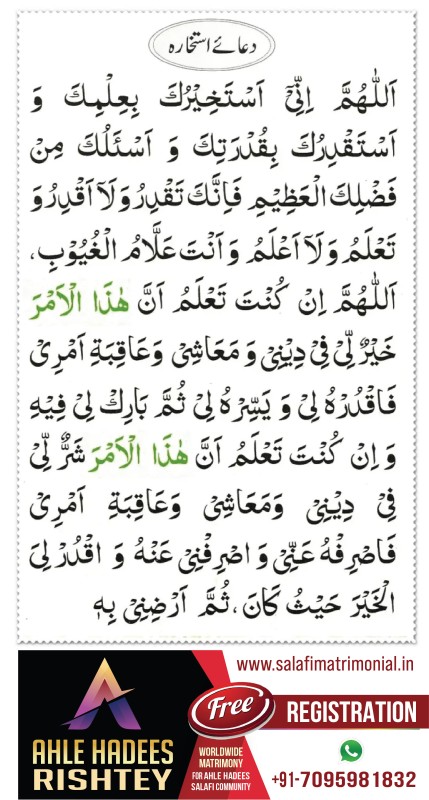 دعائے استخارہ
اَللّٰهُمَّ اِنِّیْٓ اَسْتَخِيْرُكَ بِعِلْمِكَ وَ
اَسْتَقْدِرُكَ بِقُدْرَتِكَ وَ اَسْئَلُكَ مِنْ
فَضْلِكَ الْعَظِيْمِ فَاِنَّكَ تَقْدِرُ وَلَآ اَقْدِرُ وَ
تَعْلَمُ وَلَآ اَعْلَمُ وَ اَنْتَ عَلَّامُ الْغُيُوْبِ،
اَللّٰهُمَّ اِنْ كُنْتَ تَعْلَمُ اَنَّ هٰذَا الْاَمْرَ
خَيْرٌ لِّیْ فِیْ دِيْنِیْ وَ مَعَاشِیْ وَعَاقِبَةِ اَمْرِیْ
فَاقْدُرْهُ لِیْ وَ يَسِّرْهُ لِیْ ثُمَّ بَارِكْ لِیْ فِيْهِ
وَ اِنْ كُنْتَ تَعْلَمُ اَنَّ هٰذَا الْاَمْرَ شَرٌّ لِّیْ
فِیْ دِيْنِیْ وَمَعَاشِیْ وَعَاقِبَةِ اَمْرِیْ
فَاصْرِفْهُ عَنِّیْ وَ اصْرِفْنِیْ عَنْهُ وَ اقْدُرْ لِیَ
الْخَيْرَ حَيْثُ كَانَ، ثُمَّ اَرْضِنِیْ بِهٖ
www.salafimatrimonial.in
Free REGISTRATION
AHLE HADEES
RISHTEY
WORLDWIDE
MATRIMONY
FOR AHLE HADEES
SALAFI COMMUNITY
+91-7095981832